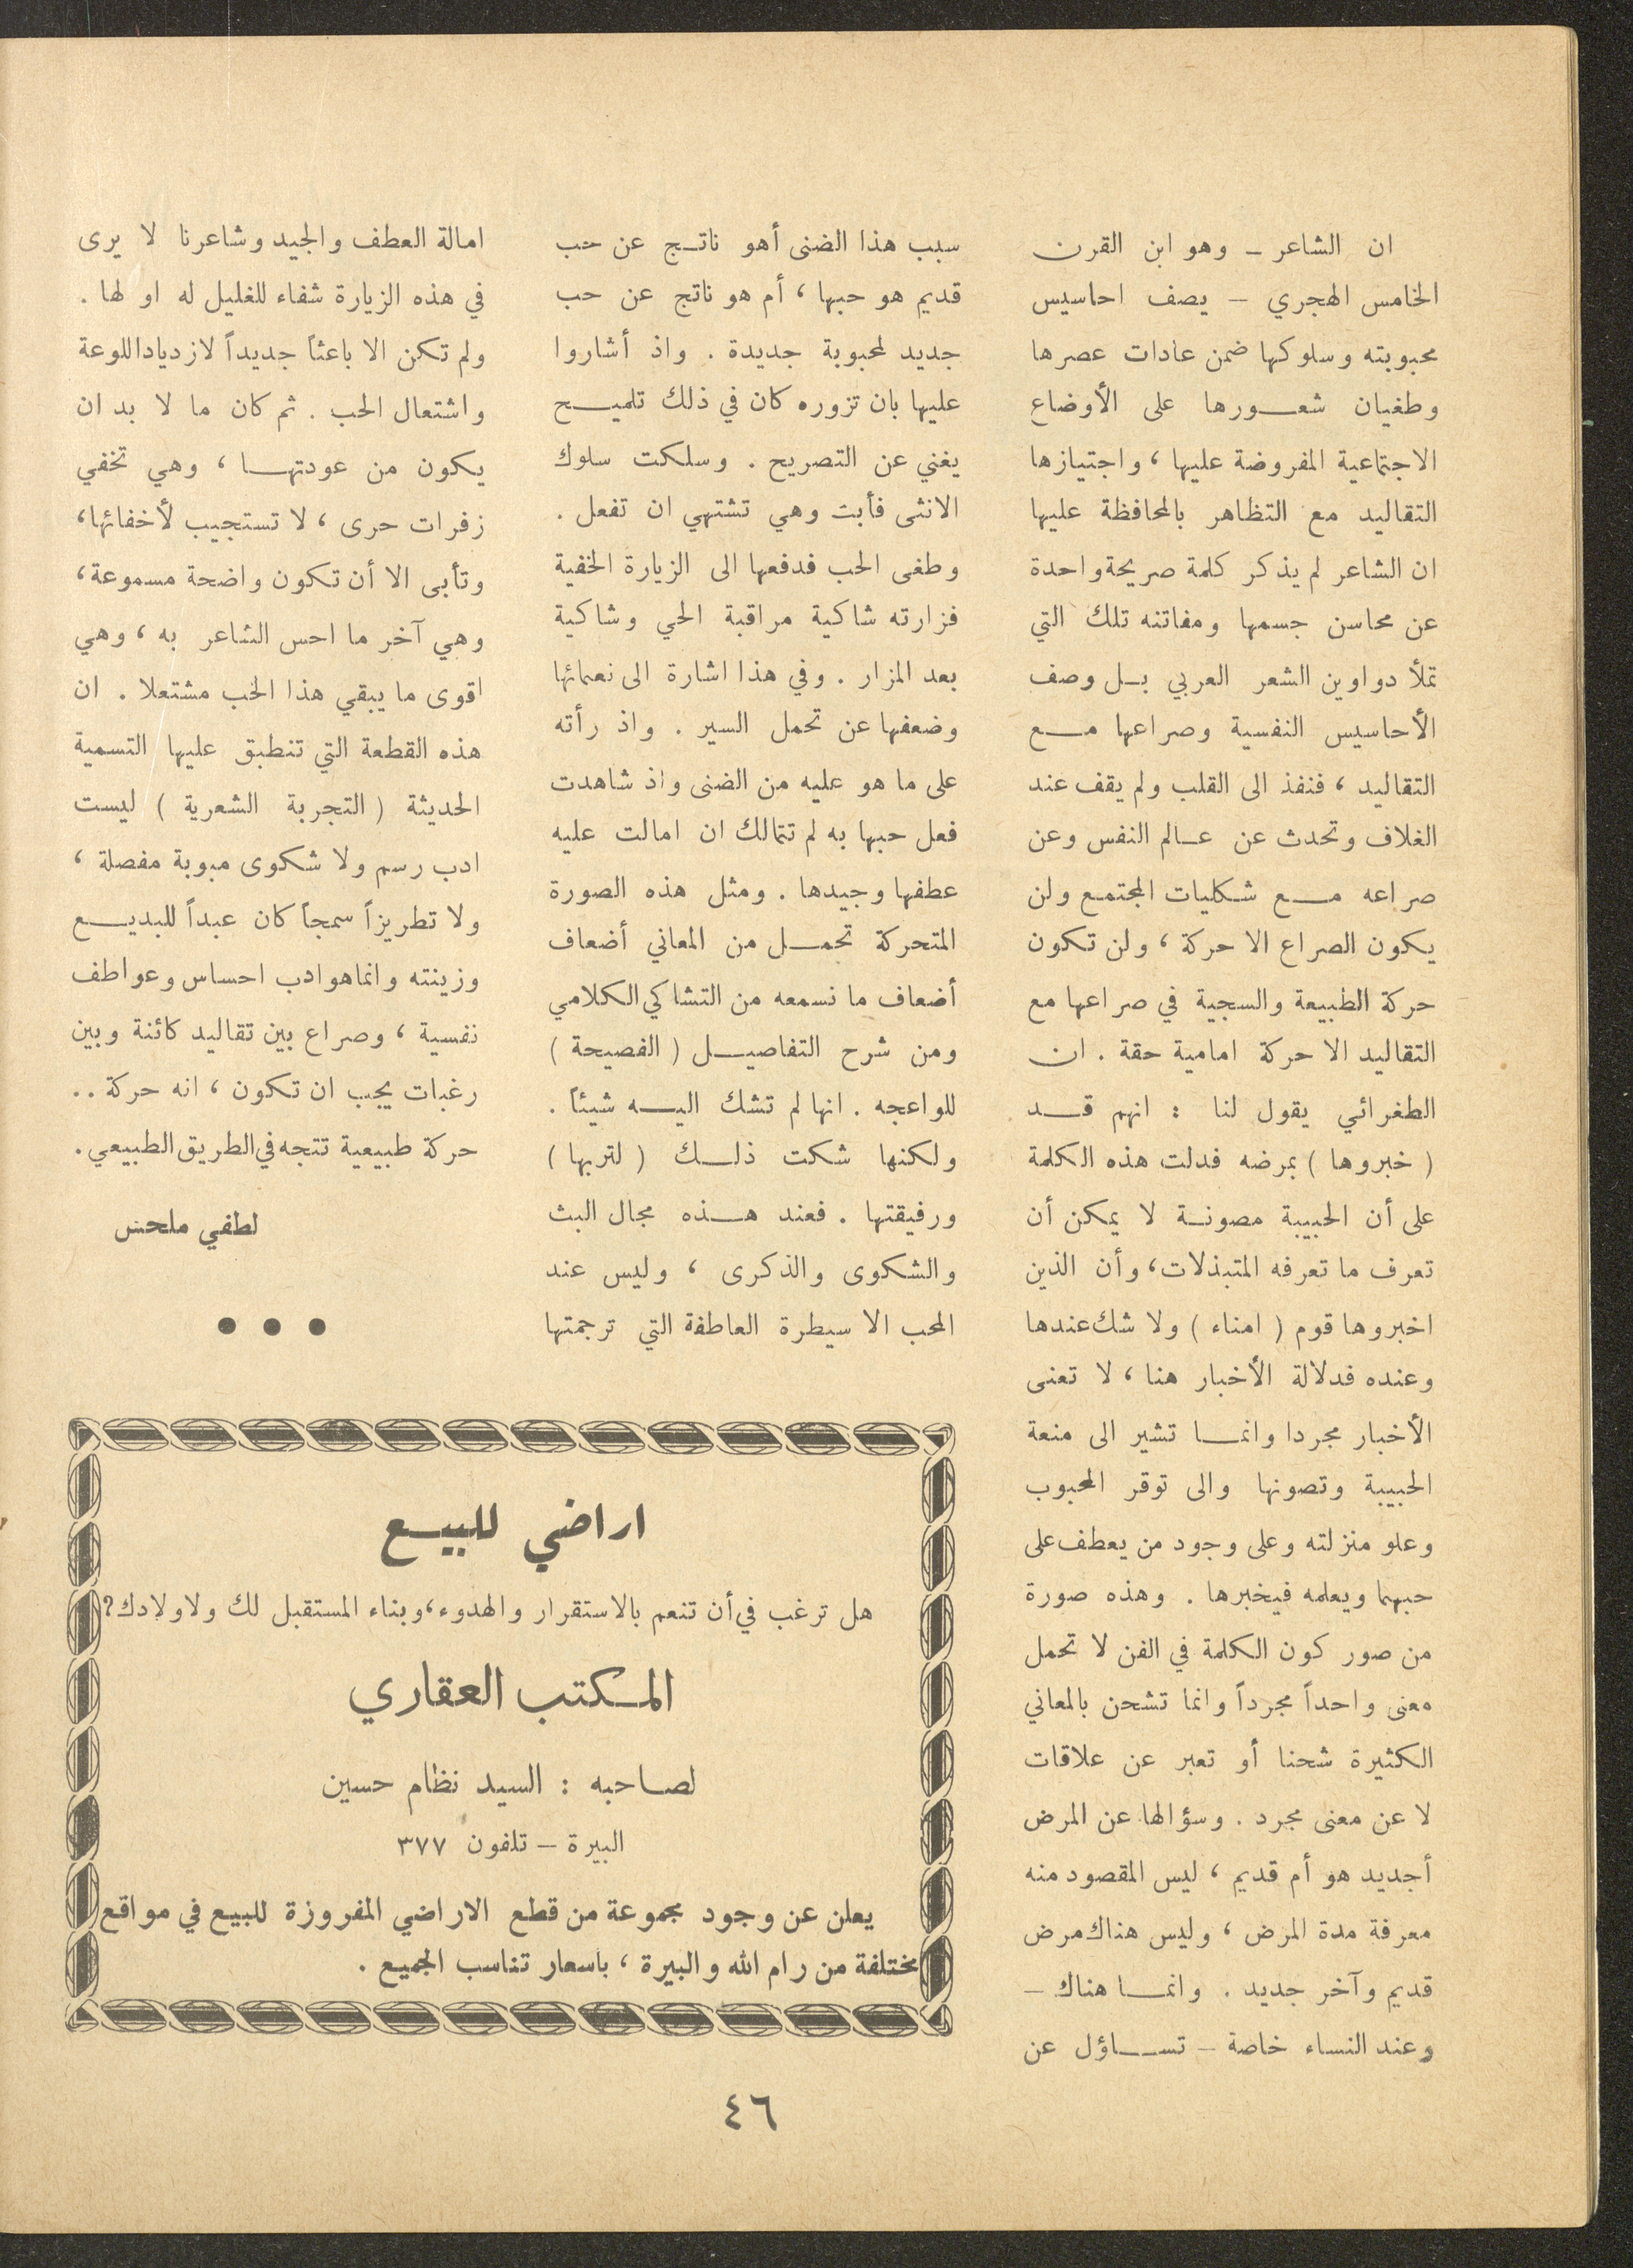 ان الشاعر - وهو ابن القرن
الخامس الهجري - يصف احاسيس
محبوبته وسلوكها ضمن عادات عصرها
وطغيان شعورها على الأوضاع
الاجتماعية المفروضة عليها ، واجتيازها
التقاليد مع التظاهر بالمحافظة عليها
ان الشاعر لم يذكر كلمة صريحة واحدة
عن محاسن جسمها ومفاتنه تلك التي
تملأ دواوين الشعر العربي بل وصف
الأحاسيس النفسية وصراعها مع
التقاليد ، فنفذ الى القلب ولم يقف عند
الغلاف وتحدث عن عالم النفس وعن
صراعه مع شكليات المجتمع ولن
يكون الصراع الا حركة ، ولن تكون
حركة الطبيعة والسجية في صراعها مع
التقاليد الا حركة امامية حقة . ان
الطغرائي يقول لنا : انهم قد
( خبروها ) بمرضه فدلت هذه الكلمة
على أن الحبيبة مصونة لا يمكن أن
تعرف ما تعرفه المتبذلات ، وأن الذين
اخبروها قوم ( امناء ) ولا شك عندها
وعنده فدلالة الأخبار هنا ، لا تعنى
الأخبار مجردا وانما تشير الى منعة
الحبيبة وتصونها والى توقر المحبوب
وعلو منزلته وعلى وجود من يعطف على
حبهما ويعلمه فيخبرها . وهذه صورة
من صور كون الكلمة في الفن لا تحمل
معنى واحداً مجرداً وانما تشحن بالمعاني
الكثيرة شحنا أو تعبر عن علاقات
لا عن معنى مجرد . وسؤالها عن المرض
أجديد هو أم قديم ، ليس المقصود منه
معرفة مدة المرض ، وليس هناك مرض
قديم وآخر جديد . وانما هناك -
وعند النساء خاصة - تساؤل عن
سبب هذا الضنى أهو ناتج عن حب
قديم هو حبها ، أم هو ناتج عن حب
جديد لمحبوبة جديدة . واذ أشاروا
عليها بان تزوره كان في ذلك تلميح
يغني عن التصريح . وسلكت سلوك
الانثى فأبت وهي تشتهي ان تفعل .
وطغى الحب فدفعها الى الزيارة الخفية
فزارته شاكية مراقبة الحي وشاكية
بعد المزار . وفي هذا اشارة الى نعمائها
وضعفها عن تحمل السير . واذ رأته
على ما هو عليه من الضنى واذ شاهدت
فعل حبها به لم تتمالك ان امالت عليه
عطفها وجيدها . ومثل هذه الصورة
المتحركة تحمل من المعاني أضعاف
أضعاف ما نسمعه من التشاكي الكلامي
ومن شرح التفاصيل ( الفصيحة )
للواعجه . انها لم تشك اليه شيئاً .
ولكنها شكت ذلك ( لتربها )
ورفيقتها . فعند هذه مجال البث
والشكوى والذكرى ، وليس عند
المحب الا سيطرة العاطفة التي ترجمتها
امالة العطف والجيد وشاعرنا لا يرى
في هذه الزيارة شفاء للغليل له او لها .
ولم تكن الا باعثاً جديداً لازدياد اللوعة
واشتعال الحب . ثم كان ما لا بد ان
يكون من عودتها ، وهي تخفي
زفرات حرى ، لا تستجيب لأخفائها ،
وتأبى الا أن تكون واضحة مسموعة ،
وهي آخر ما احس الشاعر به ، وهي
اقوى ما يبقي هذا الحب مشتعلا . ان
هذه القطعة التي تنطبق عليها التسمية
الحديثة ( التجربة الشعرية ) ليست
ادب رسم ولا شكوى مبوبة مفصلة ،
ولا تطريزاً سمجاً كان عبداً للبديع
وزينته وانما هو ادب احساس وعواطف
نفسية ، وصراع بين تقاليد كائنة وبين
رغبات يجب ان تكون ، انه حركة ..
حركة طبيعية تتجه في الطريق الطبيعي .
لطفي ملحس
اراضي للبيع
هل ترغب في أن تنعم بالاستقرار والهدوء ، وبناء المستقبل لك ولاولادك ؟
المكتب العقاري
لصاحبه : السيد نظام حسين
البيرة - تلفون ٣٧٧
يعلن عن وجود مجموعة من قطع الاراضي المفروزة للبيع في مواقع
مختلفة من رام الله والبيرة ، باسعار تناسب الجميع .
٤٦